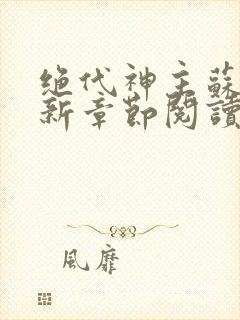 绝代神主蘇
新章節閱讀
風靡